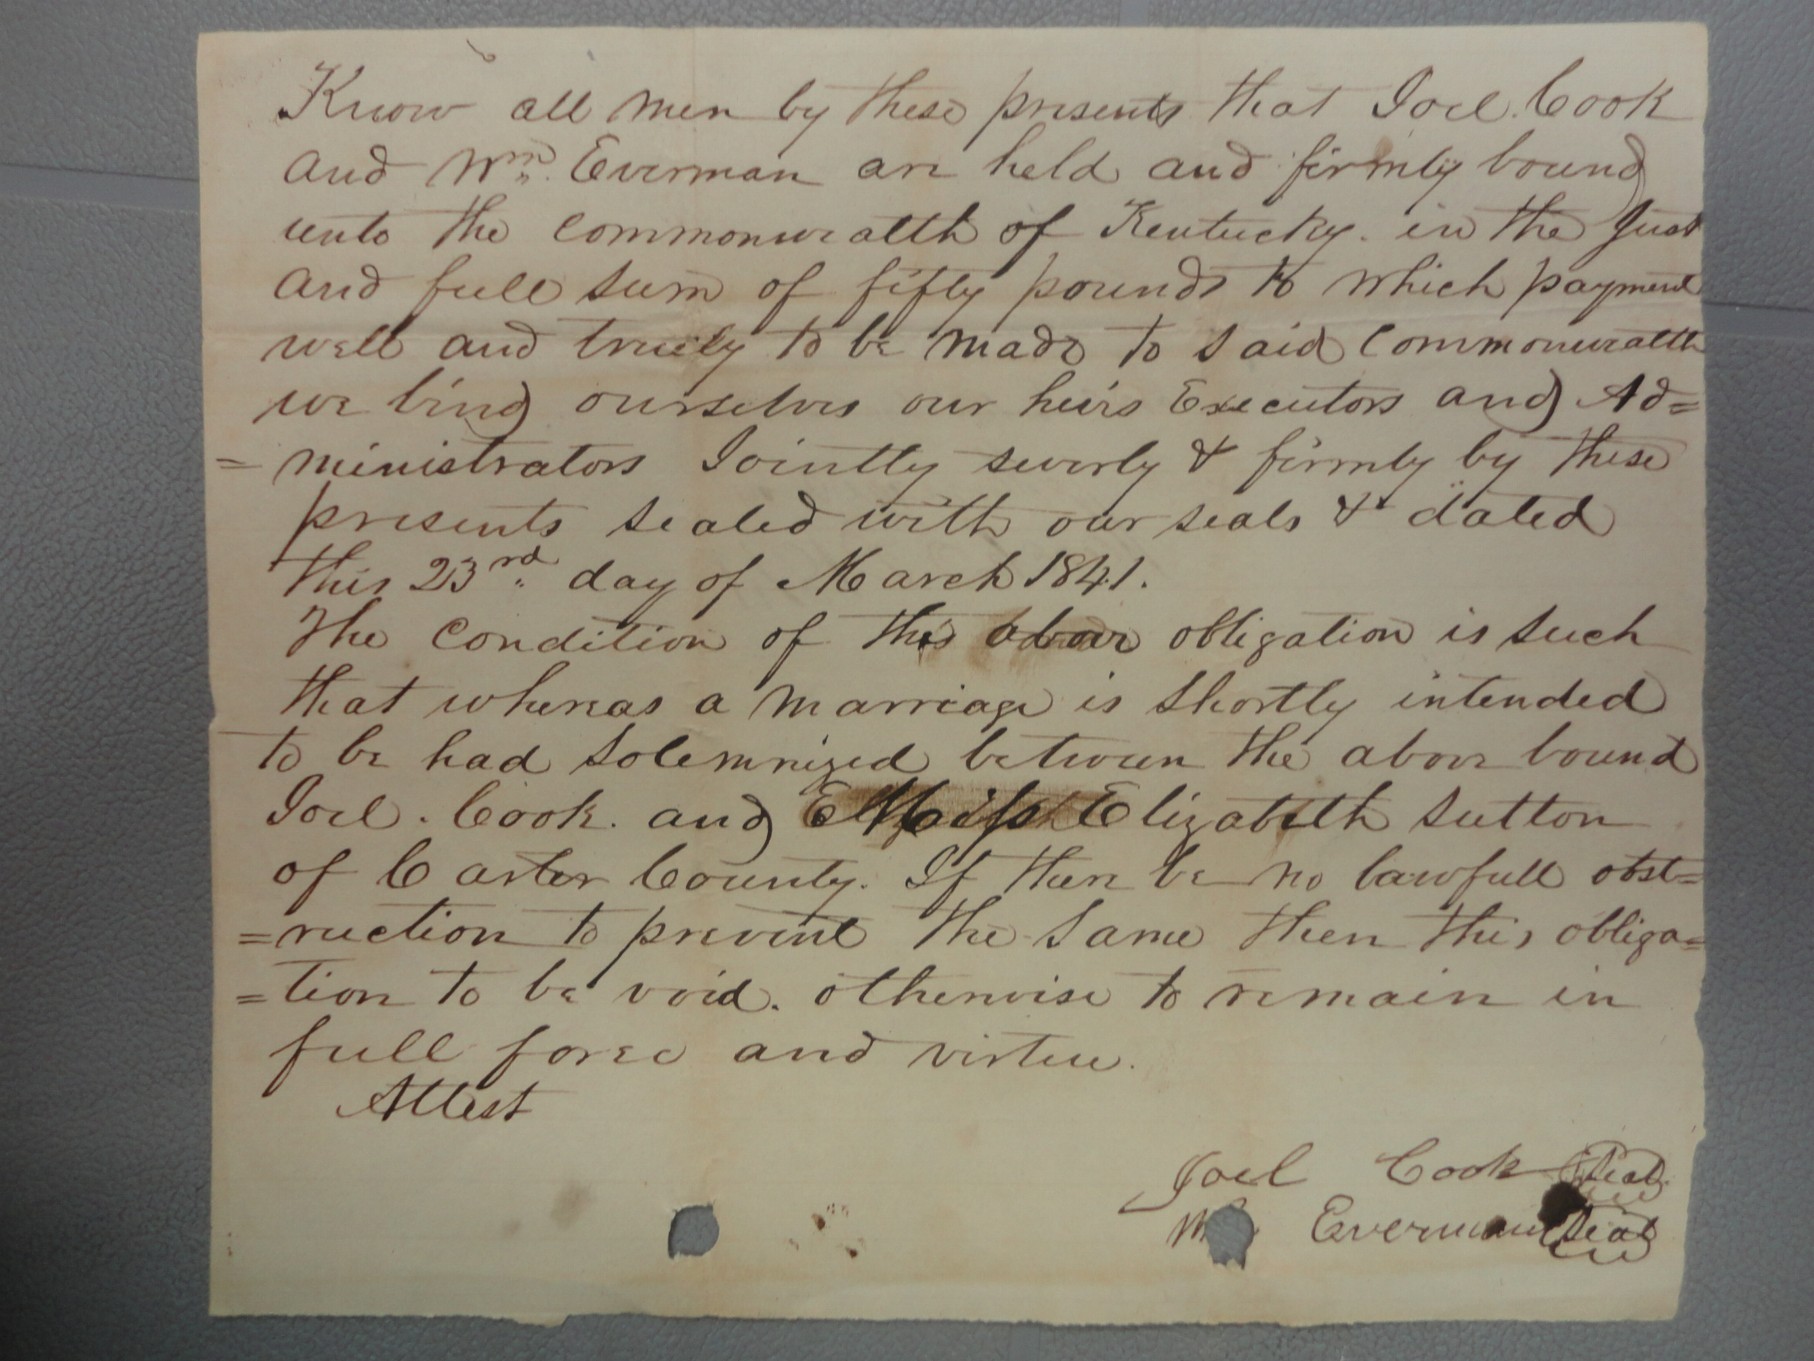 Know all men by these presents that Joel Cook
and Wm. Everman are held and firmly bound
unto the commonwealth of Kentucky. in the Just
and full sum of fifty pounds to which payment
well and truely to be made to said Commonwealth
we bind ourselves our heirs Executors and Ad=
=ministrators Jointly severly & firmly by these
presents sealed with our seals & dated
this 23rd day of March 1841.
The Condition of this above obligation is such
that whereas a marriage is shortly intended
to be had solemnized between the above bound
Joel. Cook. and Miss Elizabeth Sutton
of Carter County. If there be no lawfull obst=
=ruction to prevent the same then this obliga=
=tion to be void. otherwise to remain in
full force and virtue.
Attest
Joel Cook Seal
Everman Seal